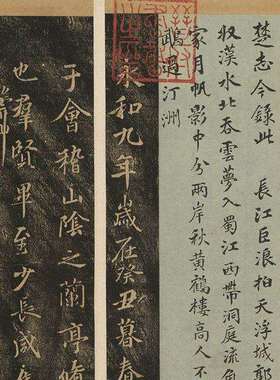 楚志今錄此 長江巨浪拍天浮城郭
収漢水北吞雲夢入蜀江西帶洞庭流角
家月帆影中分兩岸秋黃鶴樓高人不
鵡過汀洲
永和九年歲在癸丑暮春
于會稽山陰之蘭亭脩
也羣賢畢至少長咸